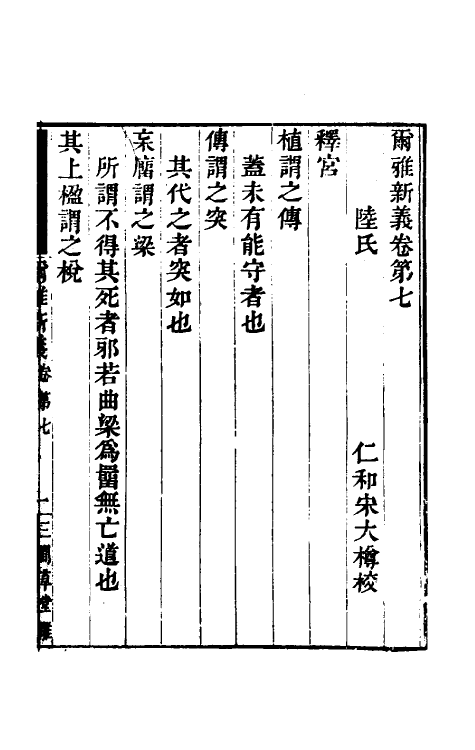 爾雅新義卷第七
陸氏 仁和宋大樽校
釋宮
植謂之傳
蓋未有能守者也
傳謂之突
其代之者突如也
杗廇謂之梁
所謂不得其死者邪若曲梁爲罶無亡道也
其上楹謂之梲
爾雅新義卷第七 一 三閒草堂雕